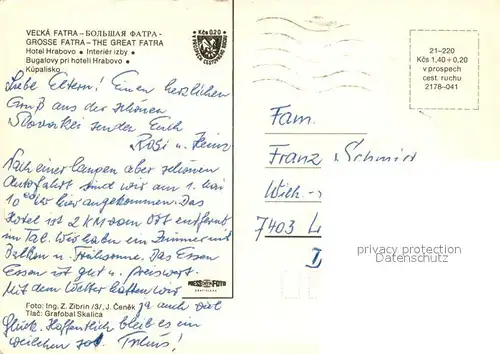 VEĽKÁ FATRA – БОЛЬШАЯ ФАТРА -
GROSSE FATRA – THE GREAT FATRA
Hotel Hrabovo • Interiér izby •
Bugalovy pri hoteli Hrabovo •
Kúpalisko
Kčs 0,20
21–220
Kčs 1,40 + 0,20
v prospech
cest. ruchu
2178–041
Liebe Eltern! Einen herzlichen
Gruß aus der schönen
Slovakei senden Euch
Rosi u. Heinz
Nach einer langen aber schönen
Autofahrt sind wir am 1. Mai
10 Uhr hier angekommen. Das
Hotel ist 2 KM vom Ort entfernt
im Tal. Wir haben ein Zimmer mit
Balkon u. Frühsonne. Das Essen
Essen ist gut u. preiswert.
Mit dem Wetter hatten wir
ja auch viel
Glück. Hoffentlich bleibt es ein
weilchen so. Tschüs!
Fam.
Franz Schmid
Wilh.-
7403
privacy protection
Oldthing/Ansichtskarten
PRESS FOTO
BRATISLAVA
Foto: Ing. Z. Zibrin /3/, J. Čeněk
Tlač: Grafobal Skalica